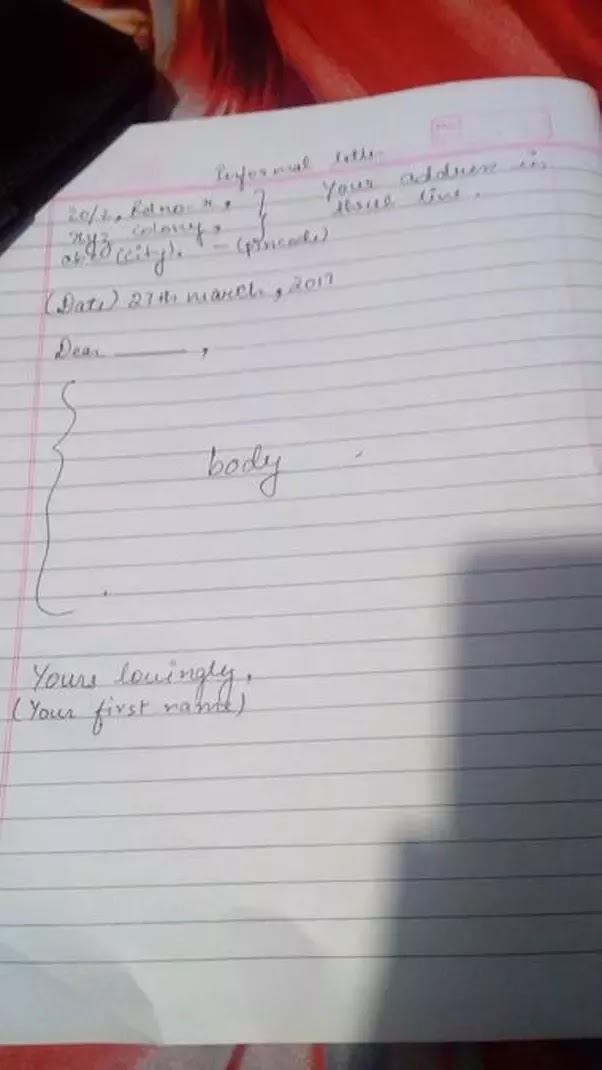 Informal letter
20/2, Rdno-x, } Your address in
xyz colony, } three line.
(city). - (pincode)
(Date) 27th march, 2017
Dear ———,
body
Yours lovingly,
(Your first name)